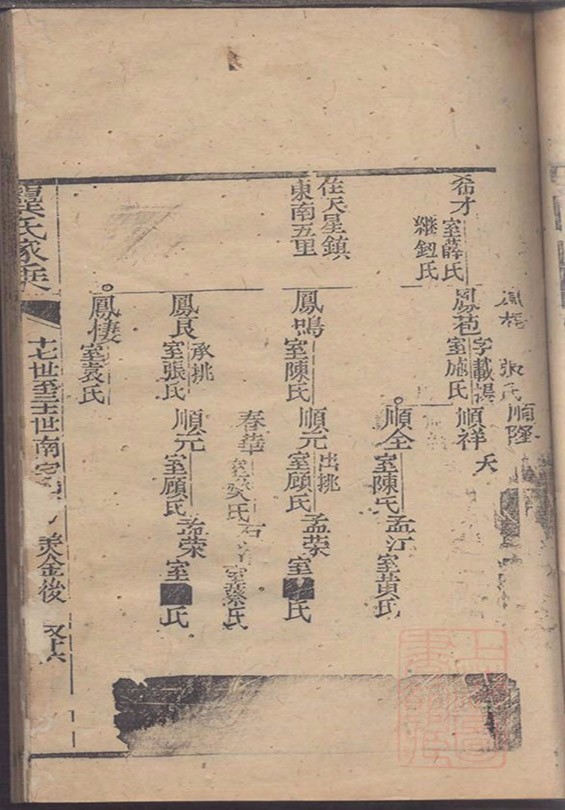 鳳梧 張氏 順隆
希才 室薛氏 繼鈕氏
鳳苞 字載揚 室施氏
順祥 夭
順全 室陳氏 孟江 室黃氏
住天星鎮
東南五里
鳳鳴 室陳氏
順元 出挑 室顧氏 孟荣 室 氏
春華 氏 室蔡氏
鳳良 承挑 室張氏
順元 室顧氏 孟荣 室 氏
鳳棲 室袁氏
龔氏家乘
十七世至三十世南
美金後
又十六